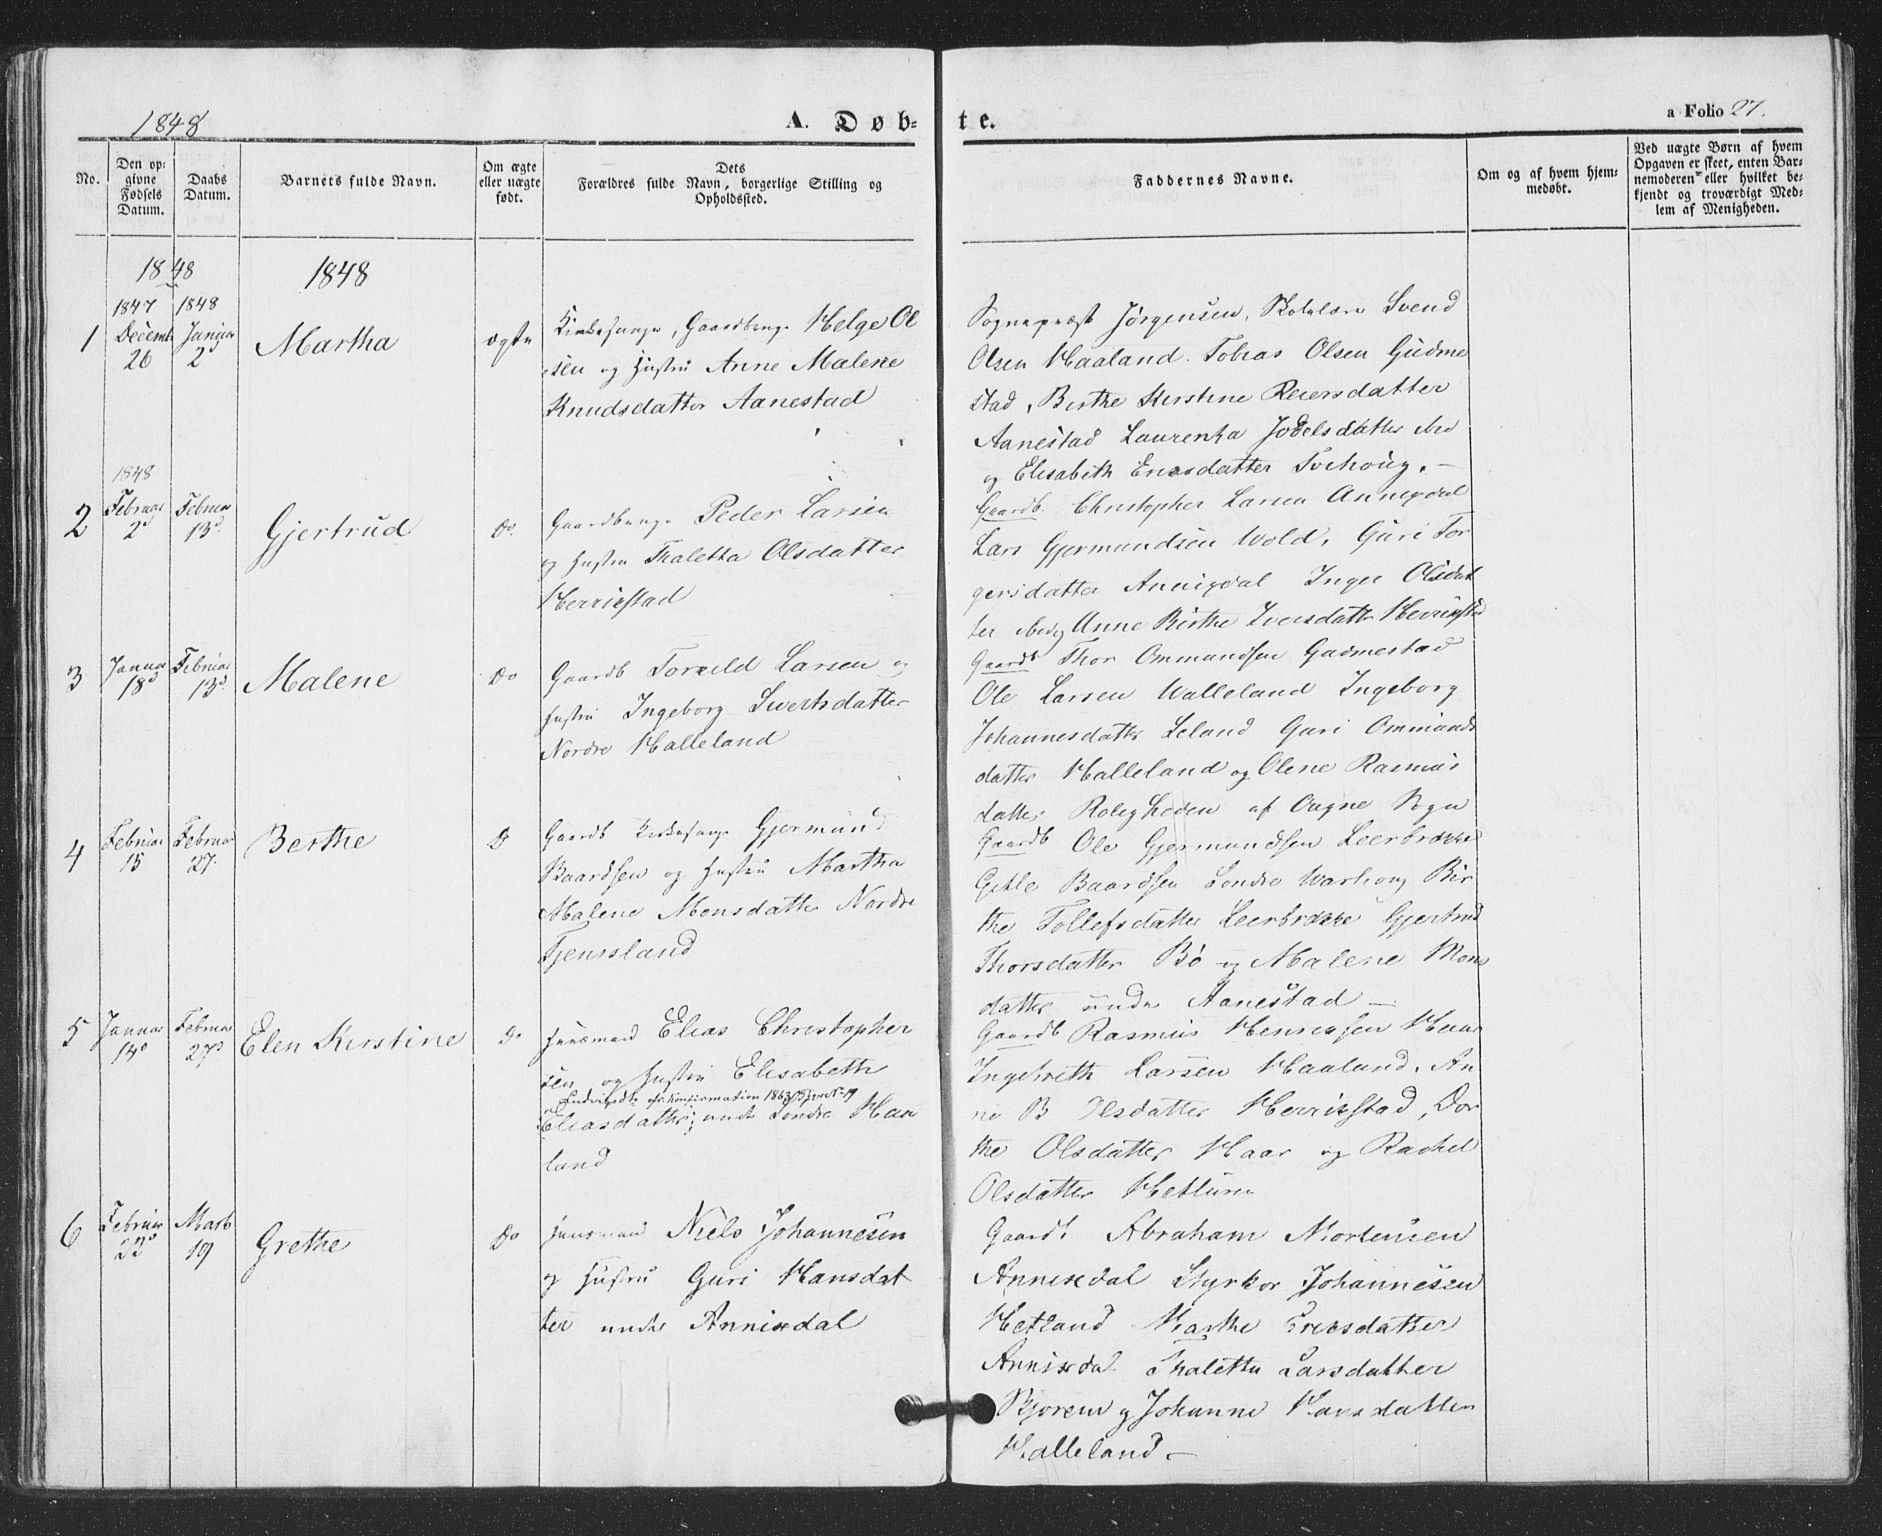 1848
A. Døb-
te.
a Folio 27.
No.
Den op-
givne
Fødsels
Datum.
Daabs
Datum.
Barnets fulde Navn.
Om ægte
eller uægte
født.
Dets
Forældres fulde Navn, borgerlige Stilling og
Opholdssted.
Faddernes Navne.
Om og af hvem hjem-
medøbt.
Ved uægte Børn af hvem
Opgaven er skeet, enten Bar-
nemoderen eller hvilket be-
kjendt og troværdigt Med-
lem af Menigheden.
1848
1848
1847
1848
1
Decemb
26
Januar
2d
Martha
ægte
Kirkesanger, Gaardbruger Helge Ol
sen og Hustru Anne Malene
Knudsdatter Aanestad
Sognepræst Jørgensen, Skolelærer Svend
Olsen Haaland. Tobias Olsen Gudme
stad, Birthe Kirstine Reiersdatter
Aanestad Laurentza Jodelsdatter ibid
og Elisabeth Enersdatter Tvihoug.
1848
2
Februar
2d
Februar
13d
Gjertrud
Do.
Gaardbruger Peder Larsen
og Hustru Thaletta Olsdatter
Herrigstad
Gaardb. Christopher Larsen Annigdal
Lars Gjermundsen Wold, Guri Tor
gersdatter Annigdal Inger Olsdat
ter ibid og Anne Birthe Iversdatter Herrigstad
3
Januar
18d
Februar
13d
Malene
Do
Gaardb Torkild Larsen og
Hustru Ingeborg Sivertsdatter
Nordre Halleland
Gaardb Thor Ommundsen Gudmestad
Ole Larsen Walleland Ingeborg
Johannesdatter Leland Guri Ommunds
datter Halleland og Olene Rasmus
datter Roligheden af Ougne Sogn
4
Februar
15
Februar
27
Berthe
D
Gaardb Kirkesanger Gjermund
Baardsen og Hustru Martha
Malene Monsdatter Nordre
Tjensland
Gaardb Ole Gjermundsen Leerbrække
Gitle Baardsen Søndre Warhoug Bir
the Tollefsdatter Leerbrække Gjertrud
Thorsdatter Bø og Malene Mons
datter under Aanestad
5
Januar
14d
Februar
27d
Elen Kirstine
Do
Huusmand Elias Christopher
sen og Hustru Elisabeth
Eliasdatter; under Søndre Haa
land
Gaardb Rasmus Henriksen Haar
Ingebreth Larsen Haaland, An
ne B Olsdatter Herrigstad, Dor
the Olsdatter Haar og Rachel
Olsdatter Hetland
6
Februar
22d
Marts
19
Grethe
Do
Huusmand Niels Johannesen
og Hustru Guri Hansdat
ter under Annisdal
Gaardb Abraham Mortensen
Annisdal Styrkor Johannesen
Hetland Marthe Griersdatter
Annisdal Thaletta Larsdatter
Bjorem og Johanne Hansdatter
Halleland